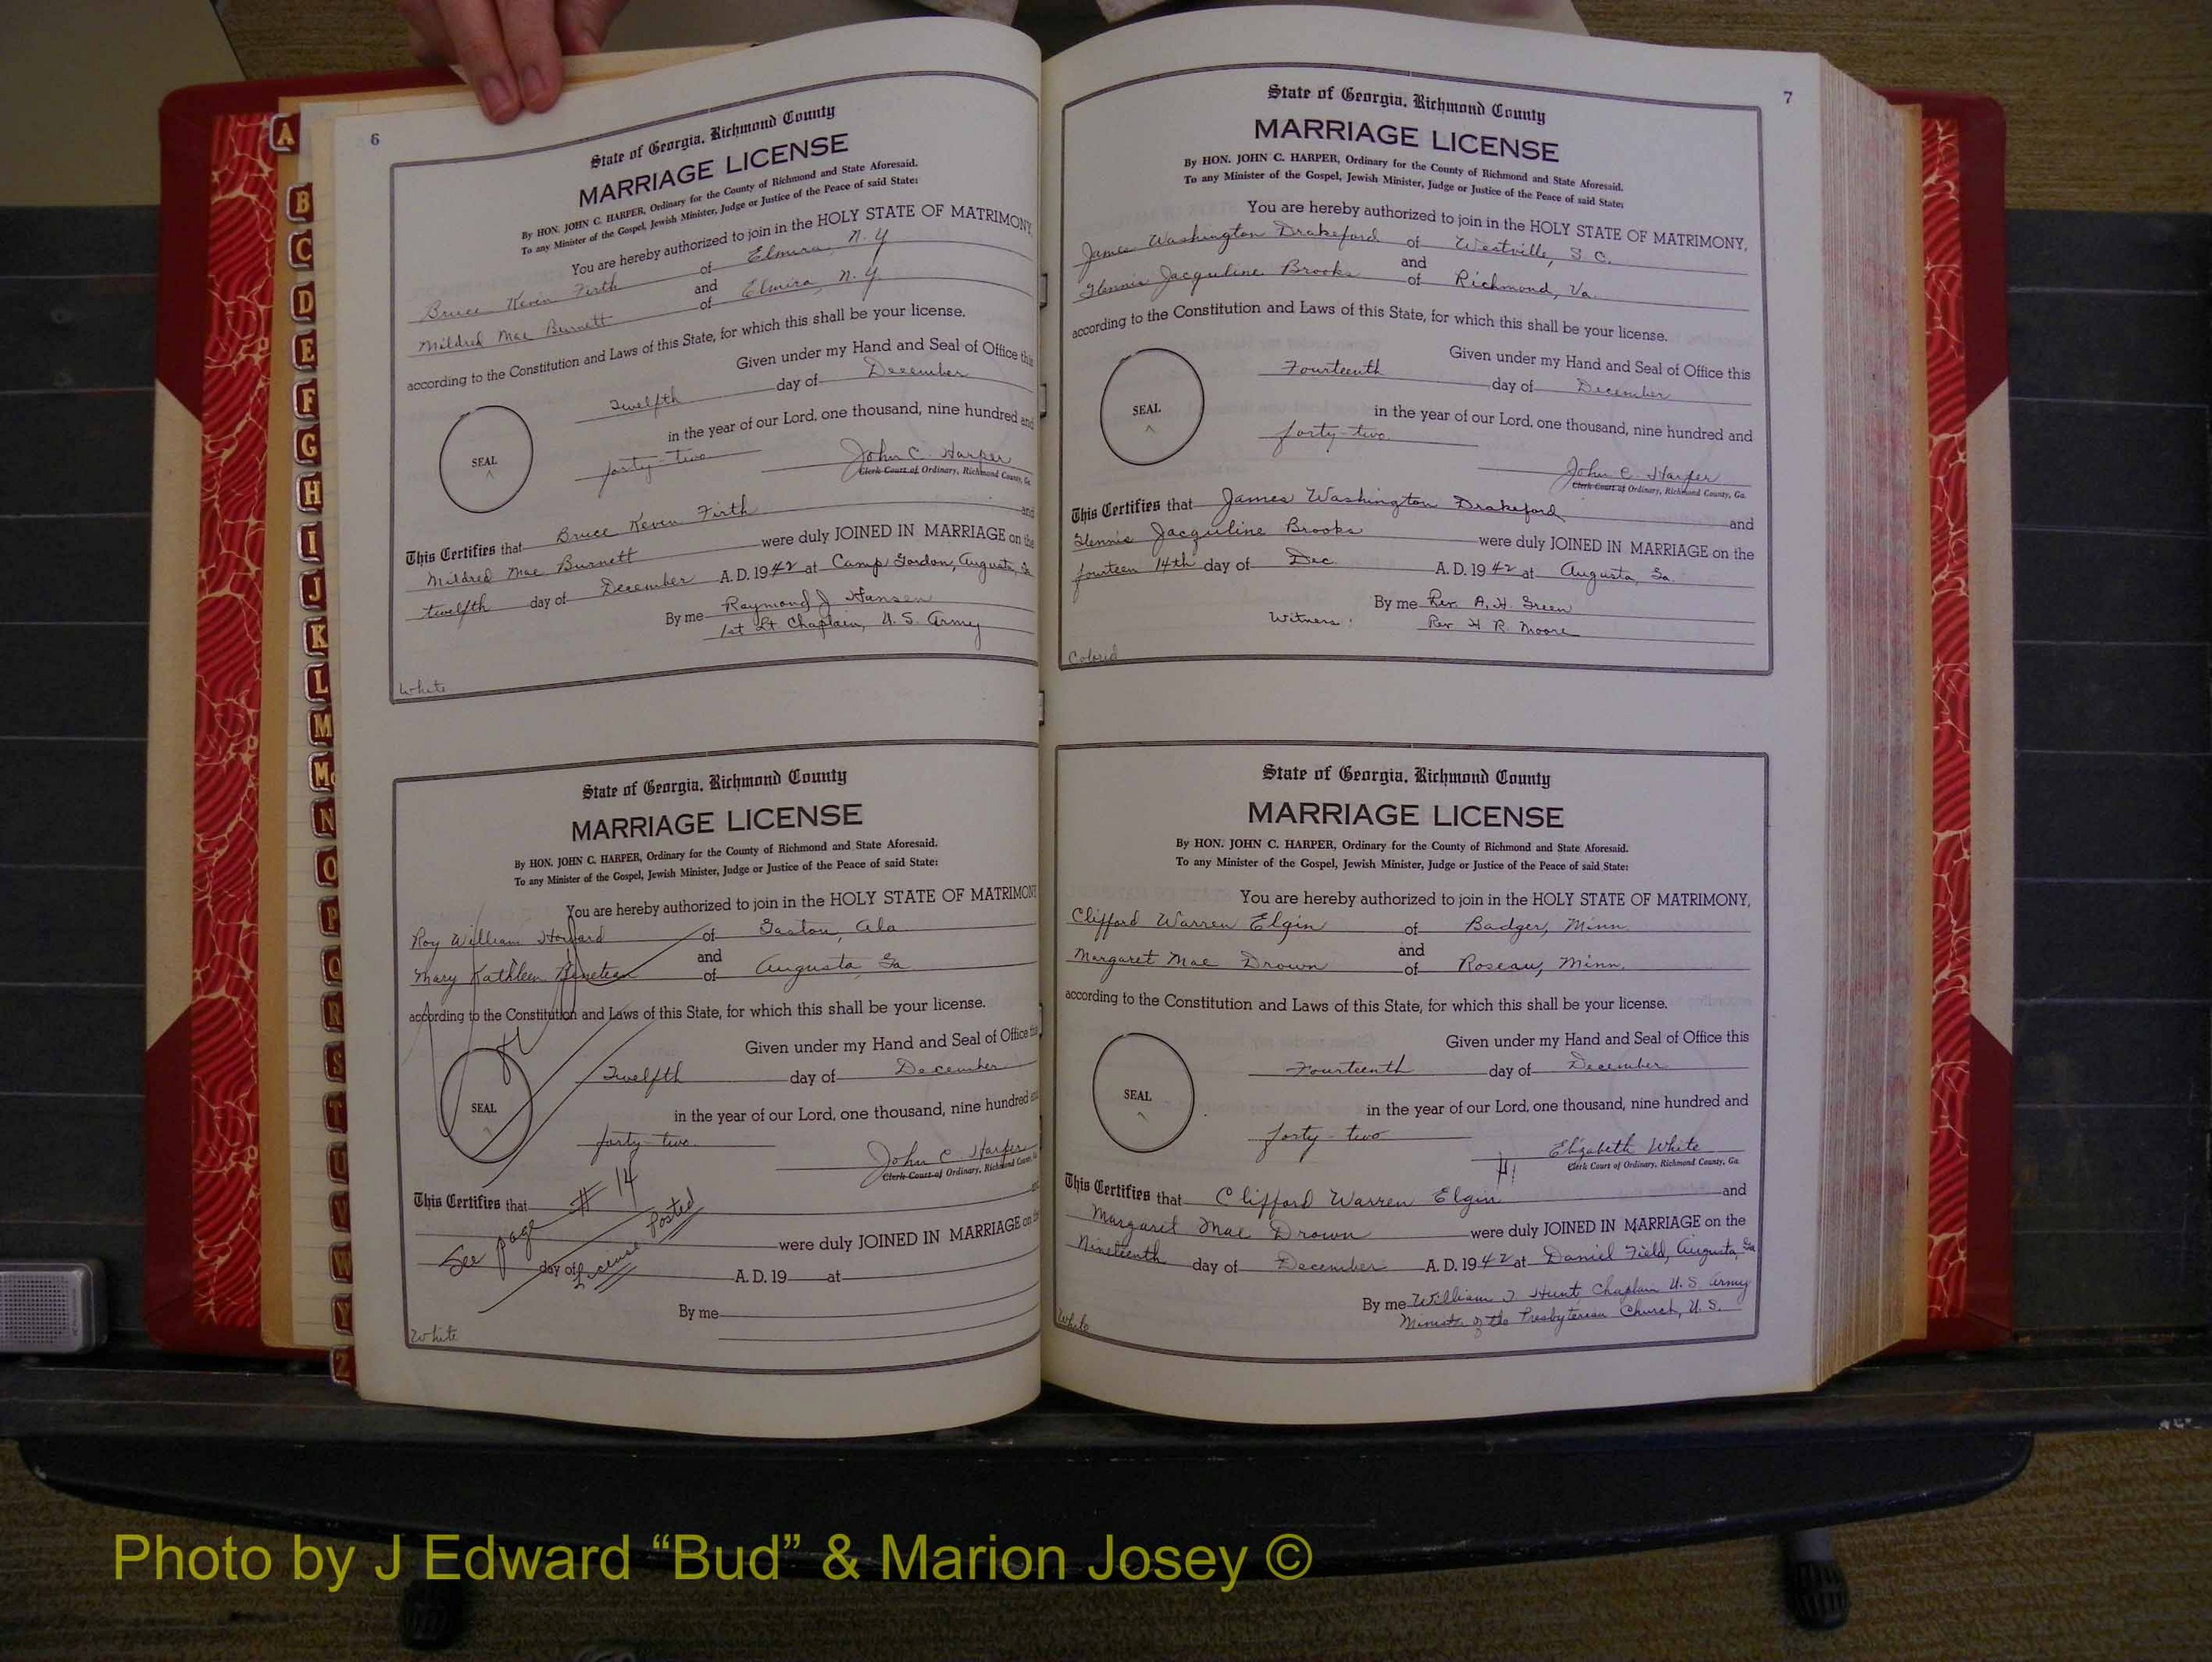 6
State of Georgia, Richmond County
MARRIAGE LICENSE
By HON. JOHN C. HARPER, Ordinary for the County of Richmond and State Aforesaid.
To any Minister of the Gospel, Jewish Minister, Judge or Justice of the Peace of said State:
You are hereby authorized to join in the HOLY STATE OF MATRIMONY,
Bruce Keven Firth of Elmira, N. Y
and
Mildred Mae Burnett of Elmira, N. Y.
according to the Constitution and Laws of this State, for which this shall be your license.
Given under my Hand and Seal of Office this
Twelfth day of December
in the year of our Lord, one thousand, nine hundred and
SEAL
forty-two
John C. Harper
Clerk Court of Ordinary, Richmond County, Ga.
This Certifies that Bruce Keven Firth and
Mildred Mae Burnett were duly JOINED IN MARRIAGE on the
twelfth day of December A. D. 1942 at Camp Gordon, Augusta, Ga
By me Raymond J Hansen
1st Lt Chaplain, U. S. Army
White
State of Georgia, Richmond County
MARRIAGE LICENSE
By HON. JOHN C. HARPER, Ordinary for the County of Richmond and State Aforesaid.
To any Minister of the Gospel, Jewish Minister, Judge or Justice of the Peace of said State:
You are hereby authorized to join in the HOLY STATE OF MATRIMONY
Roy William Howard of Gaston, Ala
and
Mary Kathleen of Augusta Ga
according to the Constitution and Laws of this State, for which this shall be your license.
Given under my Hand and Seal of Office this
Twelfth day of December
in the year of our Lord, one thousand, nine hundred and
SEAL
forty-two
John C. Harper
Clerk Court of Ordinary, Richmond County, Ga
This Certifies that and
See page # 14
were duly JOINED IN MARRIAGE on the
License Posted
day of A. D. 19 at
By me
White
7
State of Georgia, Richmond County
MARRIAGE LICENSE
By HON. JOHN C. HARPER, Ordinary for the County of Richmond and State Aforesaid.
To any Minister of the Gospel, Jewish Minister, Judge or Justice of the Peace of said State:
You are hereby authorized to join in the HOLY STATE OF MATRIMONY,
James Washington Drakeford of Westville, S. C.
and
Glennie Jacquline Brooks of Richmond, Va.
according to the Constitution and Laws of this State, for which this shall be your license.
Given under my Hand and Seal of Office this
Fourteenth day of December
in the year of our Lord, one thousand, nine hundred and
SEAL
forty-two
John C. Harper
Clerk Court of Ordinary, Richmond County, Ga.
This Certifies that James Washington Drakeford and
Glennie Jacquline Brooks were duly JOINED IN MARRIAGE on the
fourteen 14th day of Dec. A. D. 1942 at Augusta, Ga.
By me Rev. A. H. Green
Witness: Rev H R. Moore
Colored
State of Georgia, Richmond County
MARRIAGE LICENSE
By HON. JOHN C. HARPER, Ordinary for the County of Richmond and State Aforesaid.
To any Minister of the Gospel, Jewish Minister, Judge or Justice of the Peace of said State:
You are hereby authorized to join in the HOLY STATE OF MATRIMONY,
Clifford Warren Elgin of Badger, Minn.
and
Margaret Mae Drown of Roseau, Minn.
according to the Constitution and Laws of this State, for which this shall be your license.
Given under my Hand and Seal of Office this
Fourteenth day of December
in the year of our Lord, one thousand, nine hundred and
SEAL
forty-two
Elizabeth White
Clerk Court of Ordinary, Richmond County, Ga.
This Certifies that Clifford Warren Elgin and
Margaret Mae Drown were duly JOINED IN MARRIAGE on the
Nineteenth day of December A. D. 1942 at Daniel Field, Augusta, Ga
By me William J. Hunt Chaplain U. S. Army
Minister of the Presbyterian Church, U. S.
White
A
B
C
D
E
F
G
H
I
J
K
L
M
Mc
N
O
P
Q
R
S
T
U
V
W
Y
Z
Photo by J Edward “Bud” & Marion Josey ©